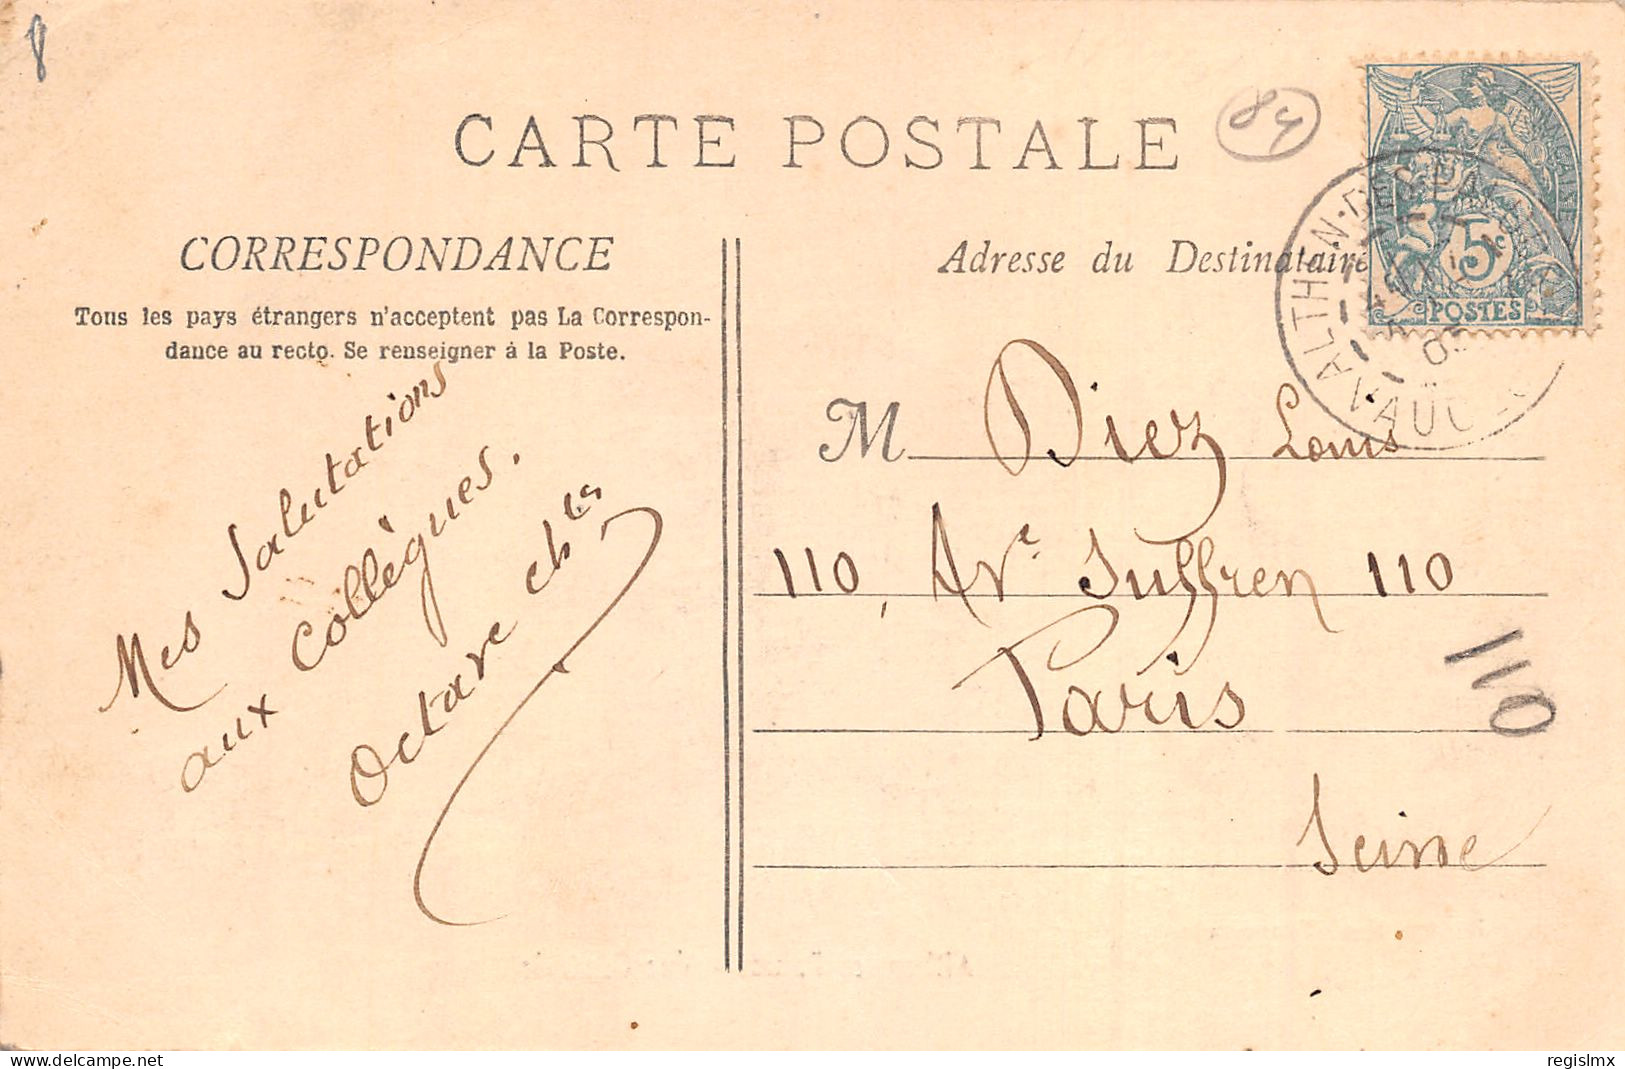 8
CARTE POSTALE
84
CORRESPONDANCE
Tous les pays étrangers n'acceptent pas La Correspon-
dance au recto. Se renseigner à la Poste.
Mes Salutations
aux collègues.
Octave ch
Adresse du Destinataire
M Diez Louis
110, Ave Suffren 110
Paris
Seine
110
5c
POSTES
ALTHEN-DES-PALUDS
05
VAUCLUSE
www.delcampe.net
regislmx